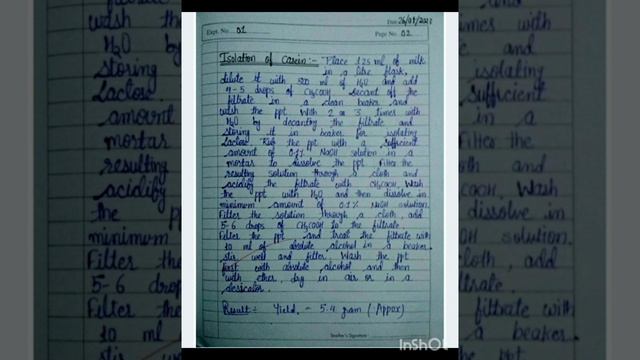 Date 26/09/2022
Expt. No. 01
Page No. 02
Isolation of Casein :- Place 125 ml of milk
in a litre flask,
dilute it with 500 ml of H2O and add
4-5 drops of CH3COOH. Decant off the
filtrate in a clean beaker and
wash the ppt with 2 or 3 times with
H2O by decanting the filtrate and
storing it in beaker for isolating
Lactose. Rub the ppt with a sufficient
amount of 0.1% NaOH solution in a
mortar to dissolve the ppt. Filter the
resulting solution through a cloth and
acidify the filtrate with CH3COOH, Wash
the ppt with H2O and then dissolve in
minimum amount of 0.1% NaOH solution.
Filter the solution through a cloth, add
5-6 drops of CH3COOH to the filtrate.
Filter the ppt and treat the filtrate with
10 ml of absolute alcohol in a beaker.
stir well and filter. Wash the ppt
first with absolute alcohol and then
with ether, dry in air or in a
desicator.
Result :- Yield - 5.4 gram (Appox)
Teacher's Signature
InShOt